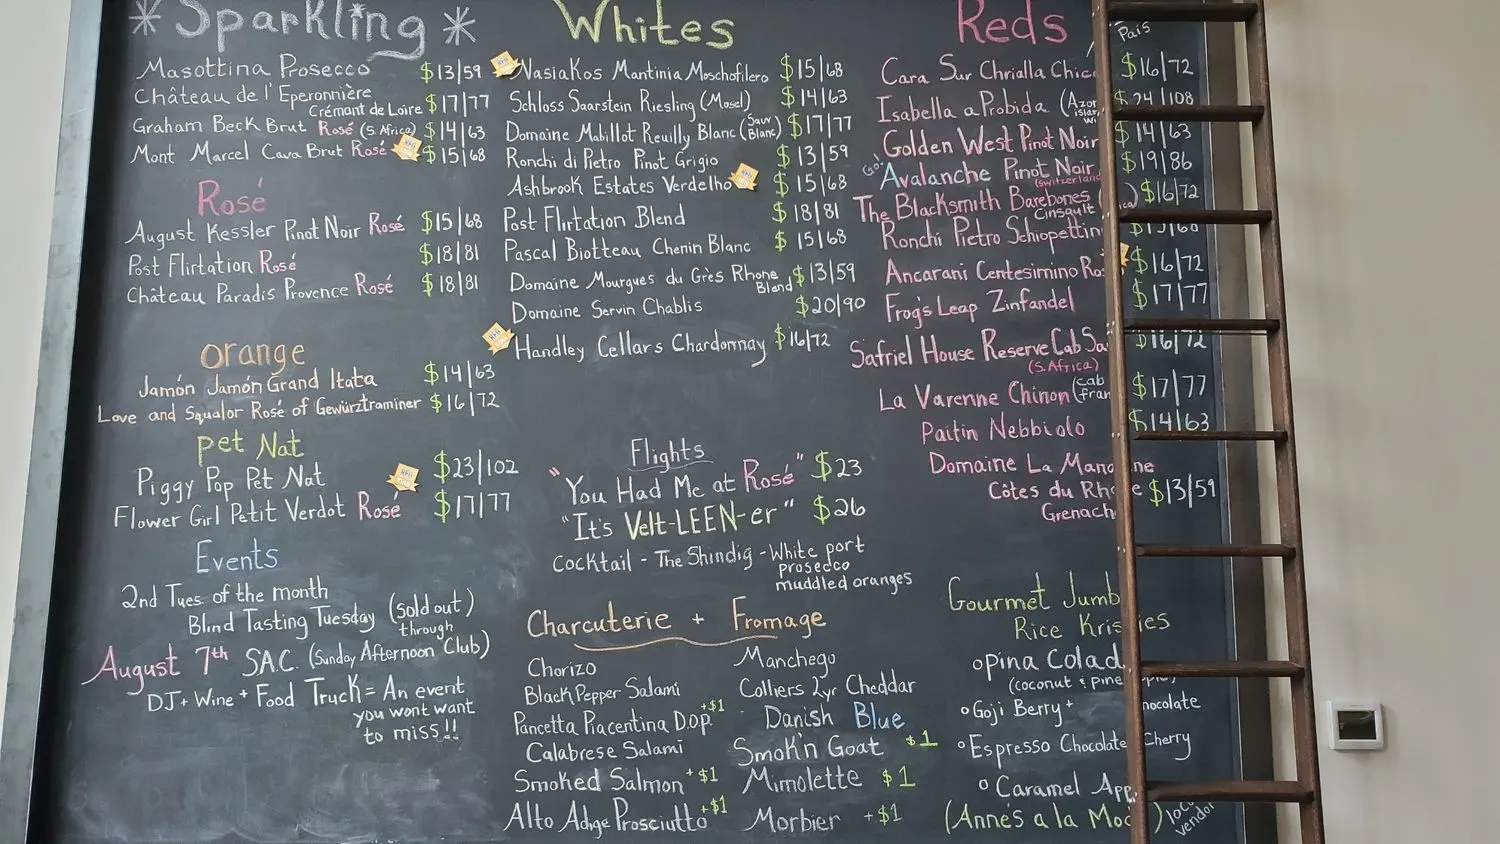 *Sparkling*
Masottina Prosecco $13|59
Château de l'Eperonnière
Crémant de Loire $17|77
Graham Beck Brut Rosé (S. Africa) $14|63
Mont Marcel Cava Brut Rosé $15|68
Rosé
August Kessler Pinot Noir Rosé $15|68
Post Flirtation Rosé $18|81
Château Paradis Provence Rosé $18|81
orange
Jamón Jamón Grand Itata $14|63
Love and Squalor Rosé of Gewürztraminer $16|72
Pet Nat
Piggy Pop Pet Nat $23|102
Flower Girl Petit Verdot Rosé $17|77
Events
2nd Tues. of the month
Blind Tasting Tuesday (sold out)
through
August 7th S.A.C. (Sunday Afternoon Club)
DJ + Wine + Food Truck = An event
you wont want
to miss!!
Whites
Nasiakos Mantinia Moschofilero $15|68
Schloss Saarstein Riesling (Mosel) $14|63
Domaine Mabillot Reuilly Blanc (Sauv Blanc) $17|77
Ronchi di Pietro Pinot Grigio $13|59
Ashbrook Estates Verdelho $15|68
Post Flirtation Blend $18|81
Pascal Biotteau Chenin Blanc $15|68
Domaine Mourgues du Grès Rhone Blend $13|59
Domaine Servin Chablis $20|90
Handley Cellars Chardonnay $16|72
Flights
"You Had Me at Rosé" $23
"It's Velt-LEEN-er" $26
Cocktail - The Shindig - White port
prosecco
muddled oranges
Charcuterie + Fromage
Chorizo
Black Pepper Salami
Pancetta Piacentina D.O.P. +$1
Calabrese Salami
Smoked Salmon +$1
Alto Adige Prosciutto +$1
Manchego
Colliers 2yr Cheddar
Danish Blue
Smok'n Goat $1
Mimolette $1
Morbier +$1
Reds
Pais
Cara Sur Chrialla Chica $16|72
Isabella a Probida (Azor $24|108
Golden West Pinot Noir $14|63
Go! Avalanche Pinot Noir $19|86
(Switzerland
The Blacksmith Barebones $16|72
Cinsault
Ronchi Pietro Schiopettin $15|68
Ancarani Centesimino Ro $16|72
Frog's Leap Zinfandel $17|77
Safriel House Reserve Cab Sa $16|72
(S. Africa)
La Varenne Chinon (cab fran $17|77
Paitin Nebbiolo $14|63
Domaine La Man ne
Côtes du Rh e $13|59
Grenach
Gourmet Jumb
Rice Kris ies
o Pina Colad
(coconut & pine
o Goji Berry + hocolate
o Espresso Chocolate Cherry
o Caramel App
(Anne's a la Mod ) local
vendor